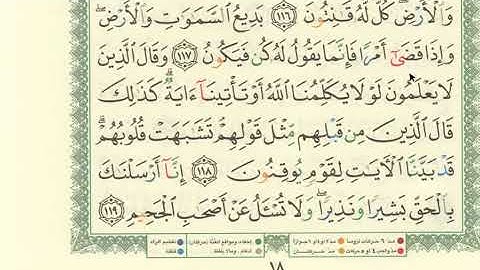 وَٱلْأَرْضِ ۖ كُلٌّ لَّهُۥ قَـٰنِتُونَ ١١٦ بَدِيعُ ٱلسَّمَـٰوَٰتِ وَٱلْأَرْضِ ۖ
وَإِذَا قَضَىٰٓ أَمْرًا فَإِنَّمَا يَقُولُ لَهُۥ كُن فَيَكُونُ ١١٧ وَقَالَ ٱلَّذِينَ
لَا يَعْلَمُونَ لَوْلَا يُكَلِّمُنَا ٱللَّهُ أَوْ تَأْتِينَآ ءَايَةٌ ۗ كَذَٰلِكَ
قَالَ ٱلَّذِينَ مِن قَبْلِهِم مِّثْلَ قَوْلِهِمْ ۘ تَشَـٰبَهَتْ قُلُوبُهُمْ ۗ
قَدْ بَيَّنَّا ٱلْـَٔايَـٰتِ لِقَوْمٍ يُوقِنُونَ ١١٨ إِنَّآ أَرْسَلْنَـٰكَ
بِٱلْحَقِّ بَشِيرًا وَنَذِيرًا ۖ وَلَا تُسْـَٔلُ عَنْ أَصْحَـٰبِ ٱلْجَحِيمِ ١١٩
١٨